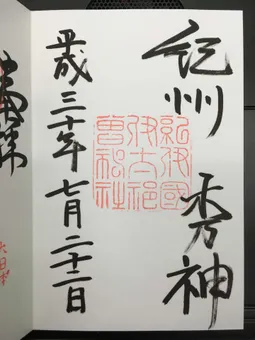 紀州 木乃神
紀伊國
伊太祁
曽神社
平成三十年七月二十二日